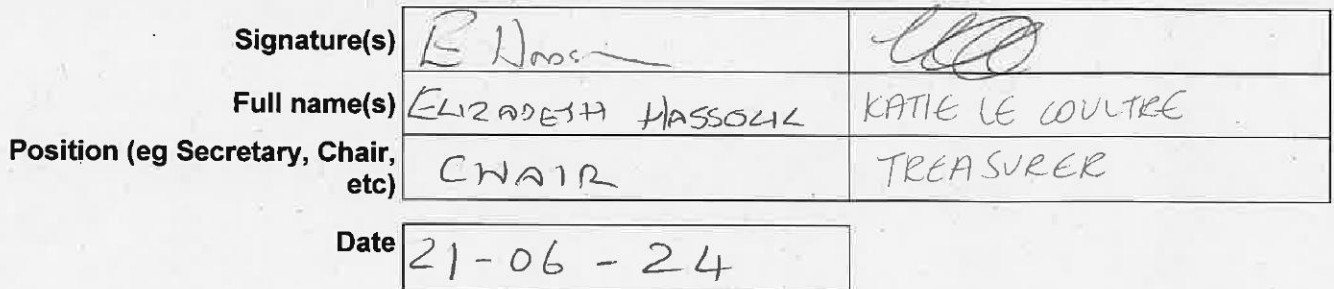 Signature(s) E Hasso
Full name(s) ELIZABETH HASSOLIL KATIE LE COULTRE
Position (eg Secretary, Chair,
etc) CHAIR TREASURER
Date 21-06-24